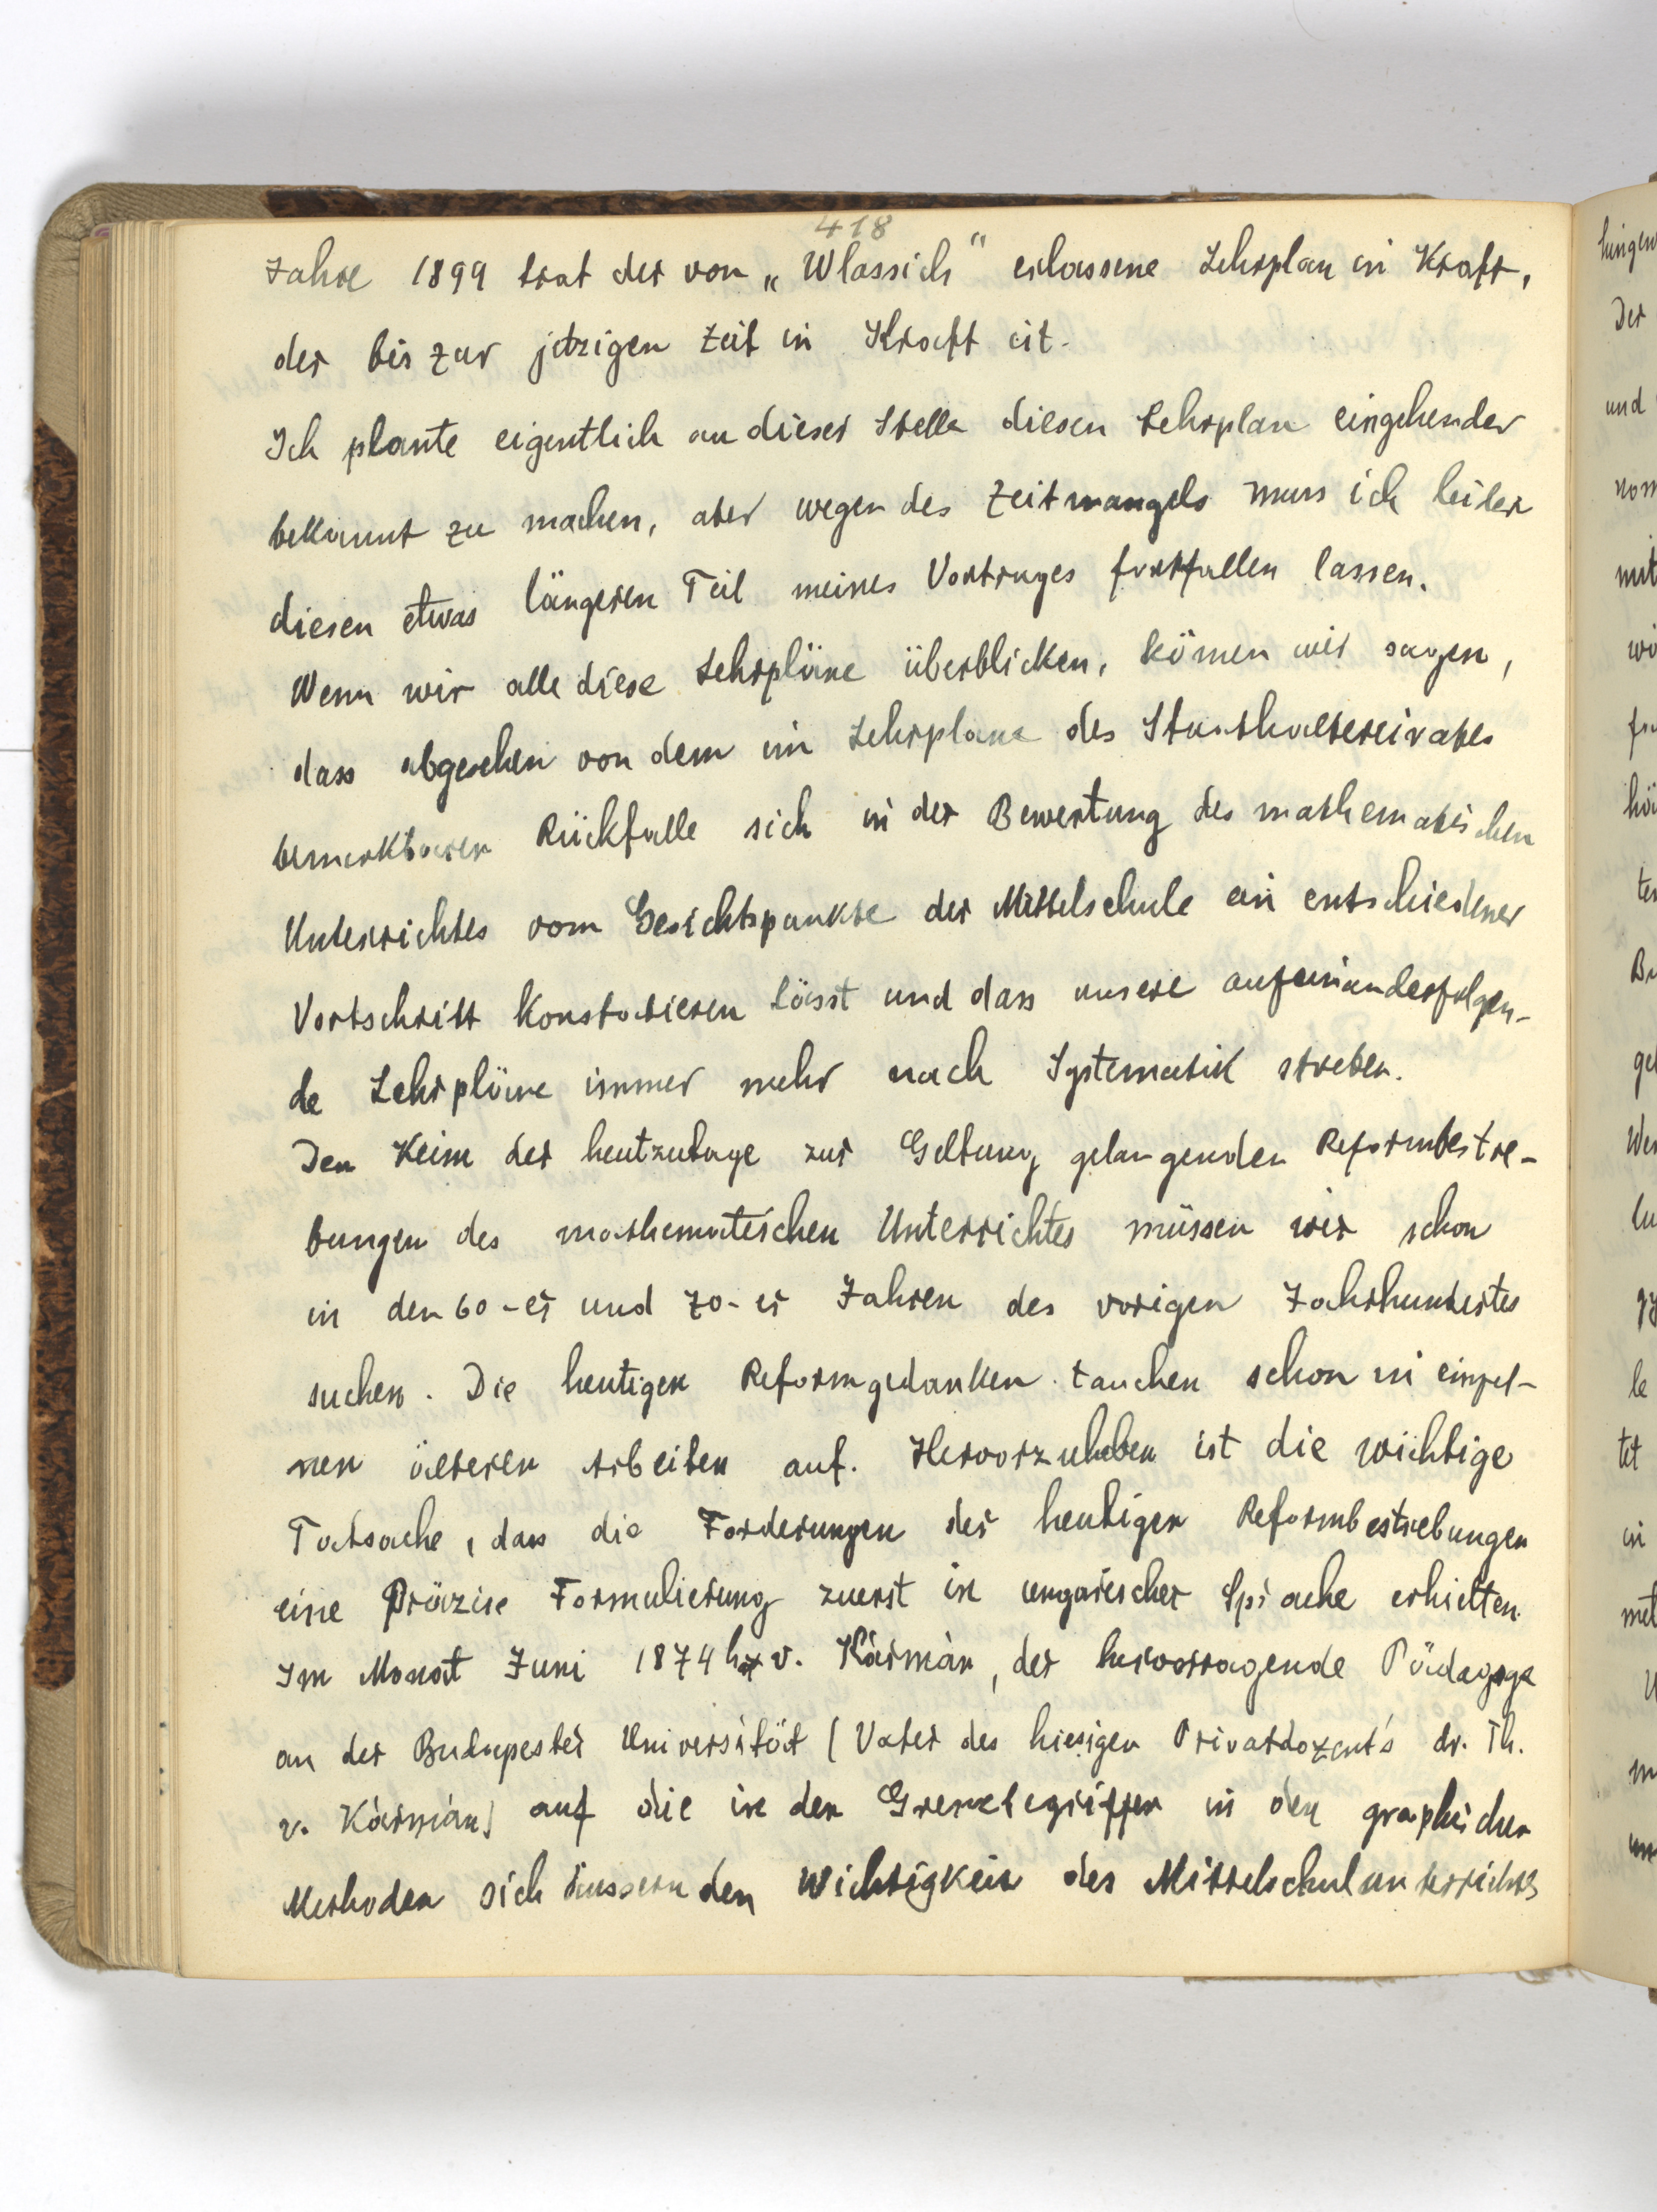 418
Jahre 1899 trat der von „Wlassich“ erlassene Lehrplan in Kraft,
der bis zur jetzigen Zeit in Kraft ist.
Ich plante eigentlich an dieser Stelle diesen Lehrplan eingehender
bekannt zu machen, aber wegen des Zeitmangels muss ich leider
diesen etwas längeren Teil meines Vortrages fortfallen lassen.
Wenn wir alle diese Lehrpläne überblicken, können wir sagen,
dass abgesehen von dem im Lehrplane des Statthaltereirates
bemerkbaren Rückfalle sich in der Bewertung des mathematischen
Unterrichtes vom Gesichtspunkte der Mittelschule ein entschiedener
Vortschritt konstatieren lässt und dass unsere aufeinanderfolgen-
de Lehrpläne immer mehr nach Systematik streben.
Den Keim der heutzutage zur Geltung gelangenden Reformbestre-
bungen des mathematischen Unterrichtes müssen wir schon
in den 60-er und 70-er Jahren des vorigen Jahrhundertes
suchen. Die heutigen Reformgedanken tauchen schon in einzel-
nen älteren Arbeiten auf. Hervorzuheben ist die wichtige
Tatsache, dass die Forderungen der heutigen Reformbestrebungen
eine Präzise Formulierung zuerst in ungarischer Sprache erhielten.
Im Monat Juni 1874 hat v. Kármán, der hervorragende Pädagoge
an der Budapester Universität (Vater des hiesigen Privatdozent's dr. Th.
v. Kármán) auf die in den Grenzbegriffen in den graphischen
Methoden sich äussernden Wichtigkeit des Mittelschulunterrichtes
hingew
Der
und
nom
mit
wi
ter
Bu
gel
We
lu
le
tet
in
met